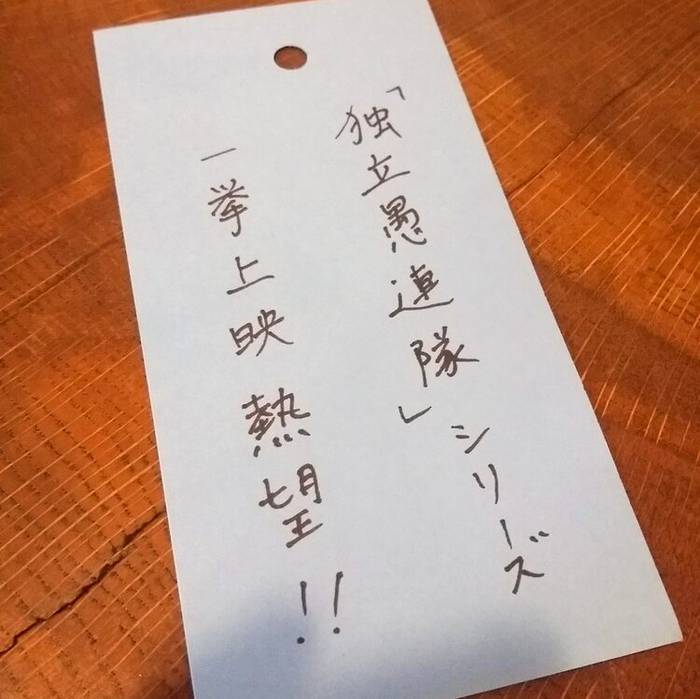 「独立愚連隊」シリーズ
一挙上映熱望!!